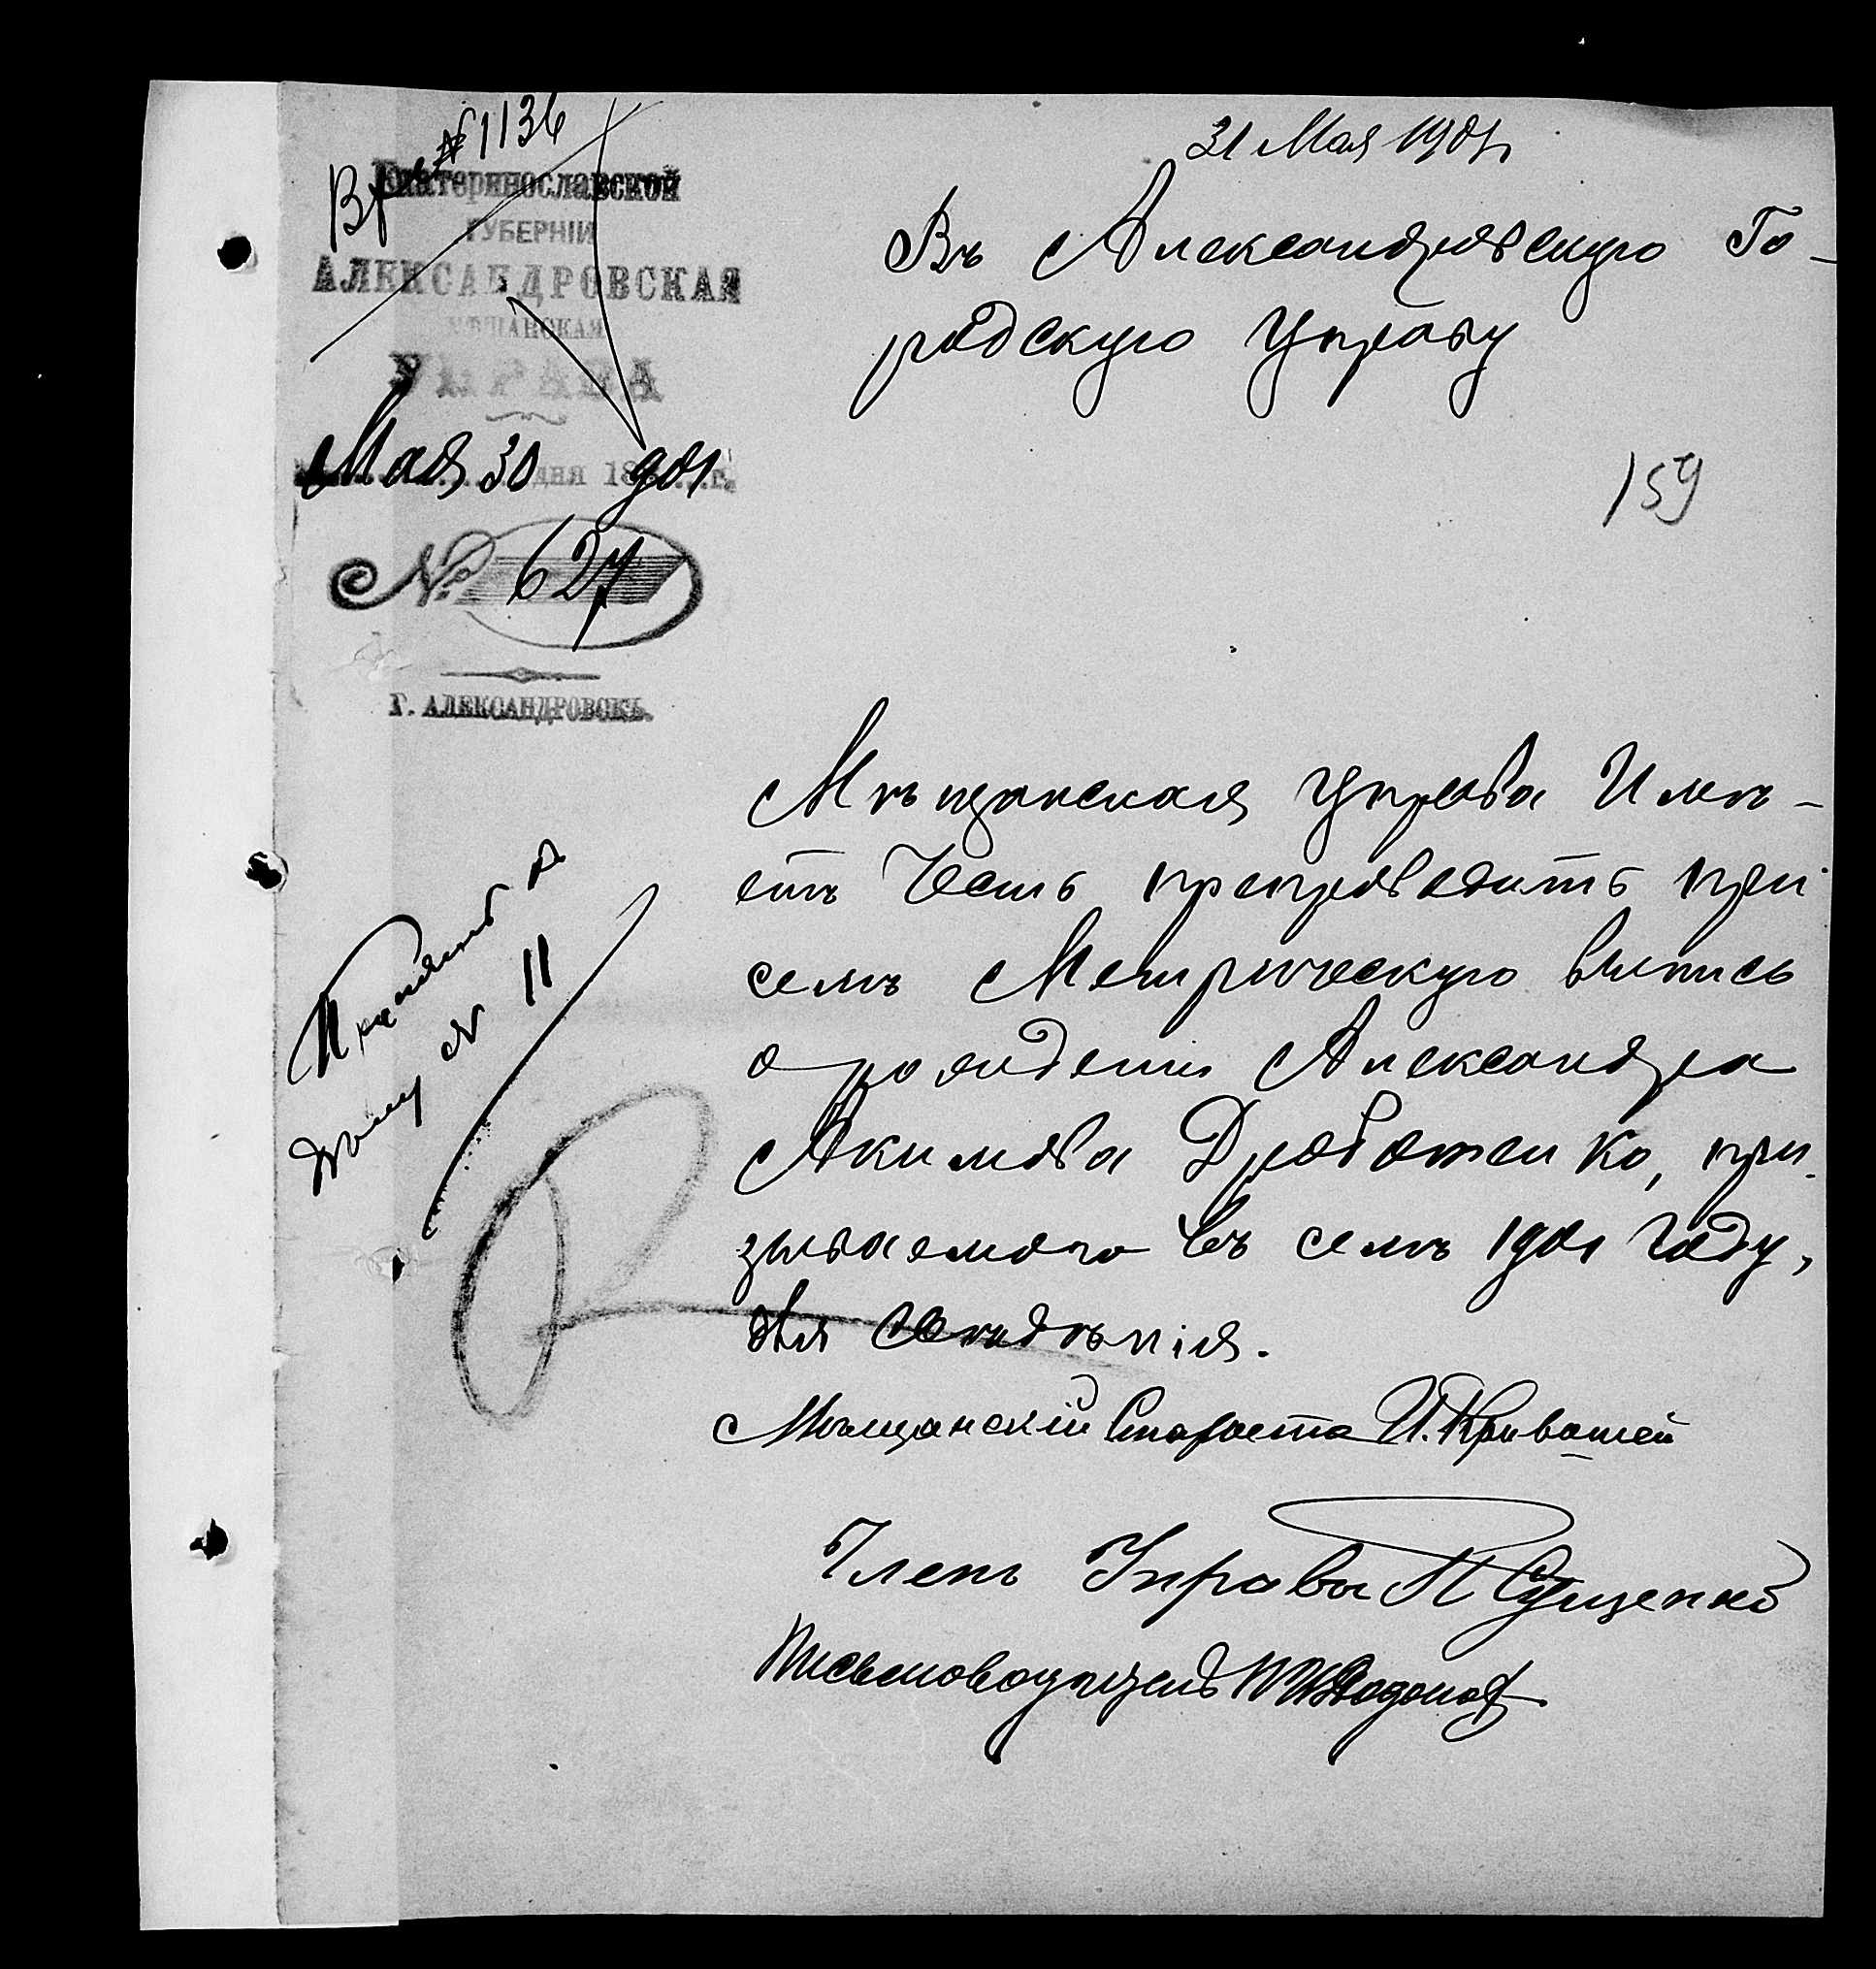 Вх. №1136
Екатеринославской
ГУБЕРНІИ
АЛЕКСАНДРОВСКАЯ
МѢЩАНСКАЯ
УПРАВА
Мая 30 дня 1901 г.
№ 627
Г. АЛЕКСАНДРОВСКЪ.
31 Мая 1901 г.
Въ Александровскую Го-
родскую Управу
159
Мѣщанская Управа Имѣ-
етъ Честь препроводить при
семъ Метрическую выпись
о рожденіи Александра
Акимова Дроботенко, при-
зываемого въ семъ 1901 году,
для свѣдѣнія.
къ
дѣлу № 11
Мѣщанскій Староста И. Кривошей
Членъ Управы П Сущенко
Письмоводитель